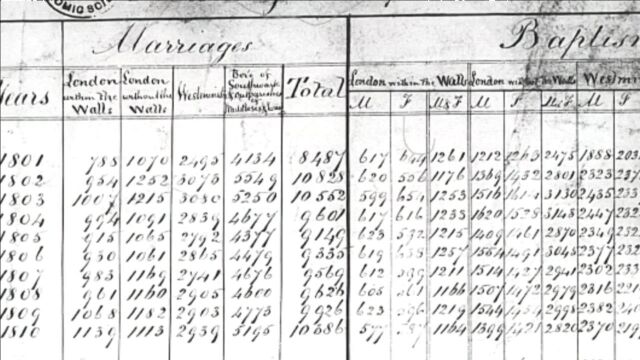 OMIC SCI
Marriages Baptis
ears London within the Walls London without the Walls Westmin Total London within the Walls London without the Walls Westm
M F M&F M F M&F M F
1801 788 1070 2495 4134 8487 617 644 1261 1212 1263 2475 1888 203
1802 954 1252 3073 5549 10828 620 556 1176 1369 1432 2801 2323
1803 1007 1215 3080 5250 10552 599 654 1253 1516 1614 3130 2435
1804 994 1091 2839 4677 9601 617 616 1233 1620 1523 3143 2447 232
1805 915 1065 2792 4377 9149 623 592 1215 1409 1461 2870 2349 232
1806 930 1061 2865 4479 9335 619 638 1257 1554 1491 3045 2377 232
1807 983 1169 2741 4676 9569 612 599 1211 1514 1427 2941 2302
1808 961 1160 2905 4600 9626 605 561 1166 1507 1472 2979 2316
1809 1068 1182 2903 4773 9926 623 596 1219 1544 1454 2998 2382
1810 1139 1113 2939 5195 10386 577 587 1164 1399 1421 2820 2370